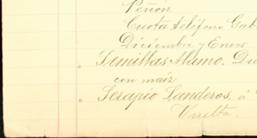 Peñón
Cuota teléfono Gab
Diciembre y Enero
Semillas Alamo. Du
con maíz
Serapio Landeros, á
Vuelta.